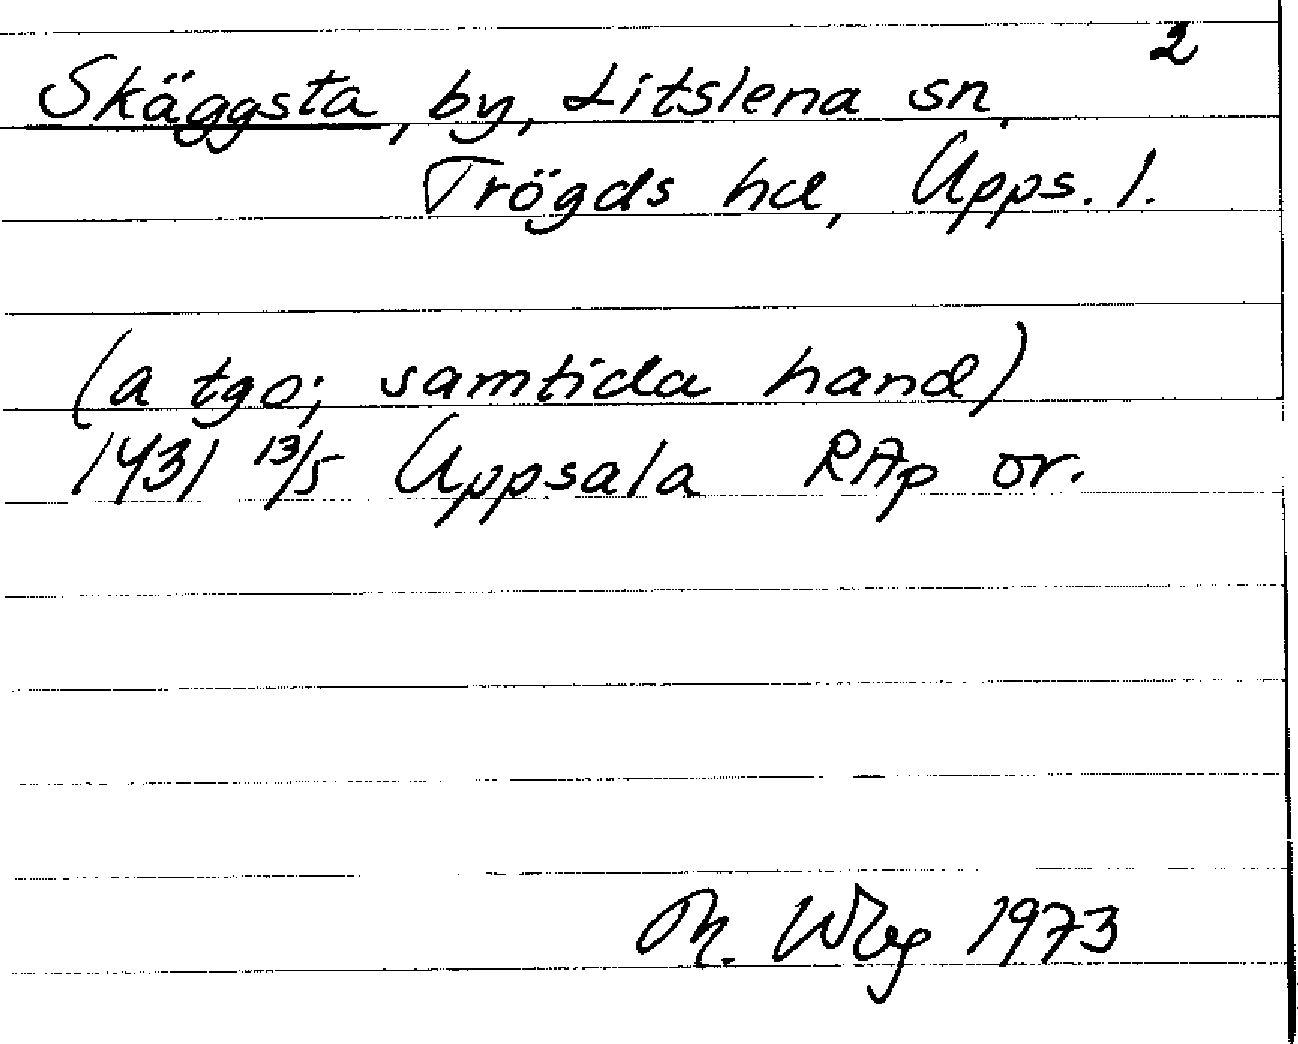 2
Skäggsta, by, Litslena sn,
Trögds hd, Upps. l.
(a tgo; samtida hand)
1431 13/5 Uppsala RAp or.
M. Wbg 1973